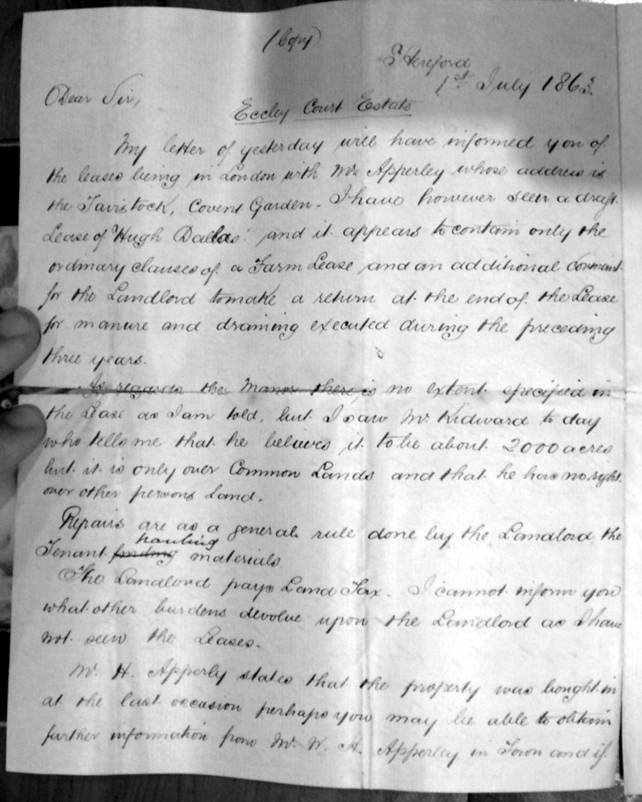 (Copy)
Hereford
1st July 1863.
Dear Sir,
Eccley Court Estate
My letter of yesterday will have informed you of
the leases being in London with Mr Apperley whose address is
the Tavistock, Covent Garden. I have however seen a draft
Lease of "Hugh Dallas" and it appears to contain only the
ordinary clauses of a Farm Lease and an additional Covenant
for the Landlord to make a return at the end of the Lease
for manure and draining executed during the preceding
three years.
As regards the Manor there is no extent specified in
the Lease as I am told, but I saw Mr Kidward to day
who tells me that he believes it to be about 2000 acres
but it is only over Common Lands and that he has no right
over other persons Land.
Repairs are as a general rule done by the Landlord the
hauling
Tenant finding materials
The Landlord pays Land Tax. I cannot inform you
what other burdens devolve upon the Landlord as I have
not seen the Leases.
Mr. H. Apperly states that the property was bought in
at the last occasion perhaps you may be able to obtain
further information from Mr. W. H. Apperley in Town and if